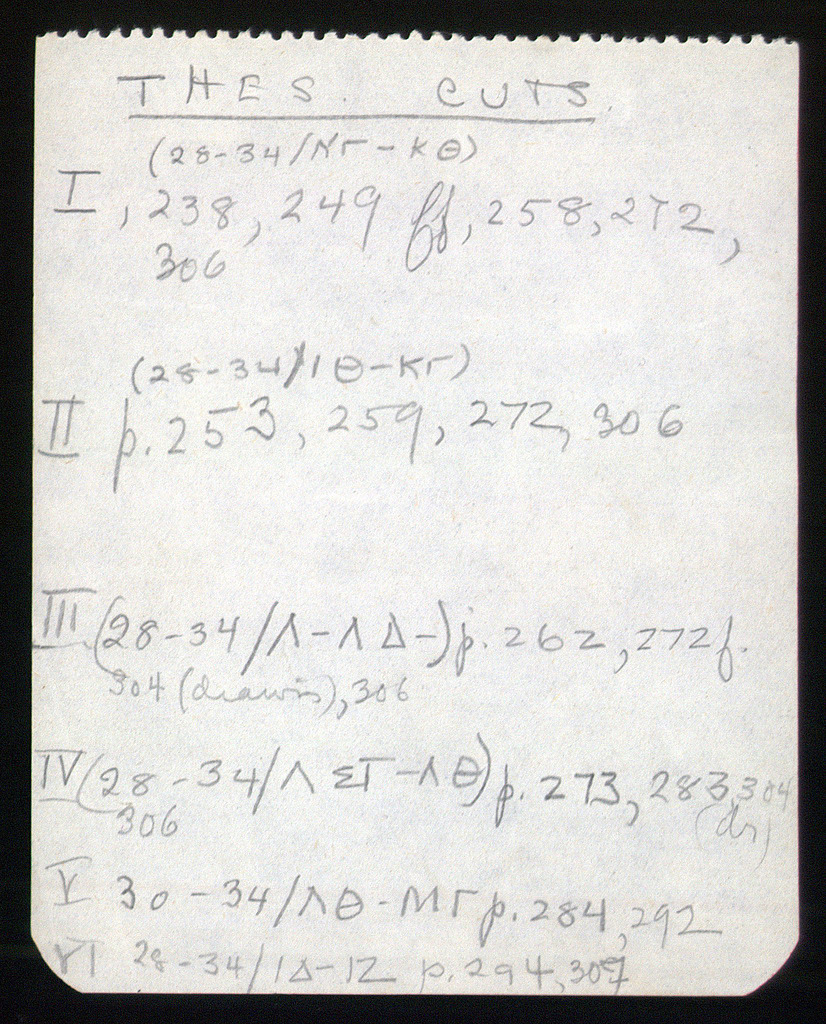 THES. CUTS.
(28-34/ΝΓ-ΚΘ)
I, 238, 249 ff, 258, 272,
306
(28-34/ΙΘ-ΚΓ)
II p. 253, 259, 272, 306
III (28-34/Λ-ΛΔ-) p. 262, 272f.
304 (drawis), 306
IV (28-34/ΛΣΤ-ΛΘ) p. 273, 283, 304
306 (dr)
V 30-34/ΛΘ-ΜΓ p. 284, 292
VI 28-34/ΙΔ-ΙΖ p. 294, 307